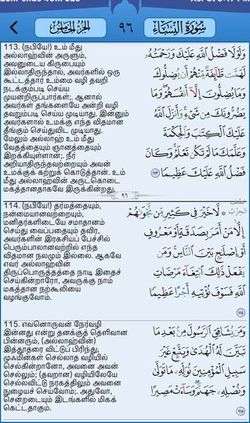 سُورَةُ النِّسَاء
٩٦
الجزء الخامس
113. (நபியே!) உம் மீது
அல்லாஹ்வின் அருளும்,
அவனுடைய கிருபையும்
இல்லாதிருந்தால், அவர்களில் ஒரு
கூட்டத்தார் உம்மை வழி தவறி
நடக்கும்படி செய்ய
முயன்றிருப்பார்கள்; ஆனால்
அவர்கள் தங்களையே அன்றி வழி
கெடும்படி செய்ய முடியாது. இன்னும்
அவர்களால் உமக்கு எந்த விதமான
தீங்கும் செய்துவிட முடியாது.
மேலும் அல்லாஹ் உம் மீது
வேதத்தையும் ஞானத்தையும்
இறக்கியுள்ளான்; நீர்
அறியாதிருந்தவற்றையும் அவன்
உமக்குக் கற்றுக் கொடுத்தான். உம்
மீது அல்லாஹ்வின் அருட்கொடை
மகத்தானதாகவே இருக்கின்றது.
وَلَوْلَا فَضْلُ اللَّهِ عَلَيْكَ وَرَحْمَتُهُ
لَهَمَّت طَّائِفَةٌ مِّنْهُمْ أَن يُضِلُّوكَ
وَمَا يُضِلُّونَ إِلَّا أَنفُسَهُمْ وَمَا
يَضُرُّونَكَ مِن شَيْءٍ وَأَنزَلَ اللَّهُ
عَلَيْكَ الْكِتَابَ وَالْحِكْمَةَ
وَعَلَّمَكَ مَا لَمْ تَكُن تَعْلَمُ وَكَانَ
فَضْلُ اللَّهِ عَلَيْكَ عَظِيمًا ١١٣
٩٦
114. (நபியே!) தர்மத்தையும்,
நன்மையானவற்றையும்,
மனிதர்களிடையே சமாதானம்
செய்து வைப்பதையும் தவிர,
அவர்களின் இரகசியப் பேச்சில்
பெரும்பாலானவற்றில் எந்த
விதமான நலமும் இல்லை. ஆகவே
எவர் அல்லாஹ்வின்
திருப்பொருத்தத்தை நாடி இதைச்
செய்கின்றாரோ, அவருக்கு நாம்
மகத்தான நற்கூலியை
வழங்குவோம்.
لَّا خَيْرَ فِي كَثِيرٍ مِّن نَّجْوَاهُمْ
إِلَّا مَنْ أَمَرَ بِصَدَقَةٍ أَوْ مَعْرُوفٍ
أَوْ إِصْلَاحٍ بَيْنَ النَّاسِ وَمَن
يَفْعَلْ ذَٰلِكَ ابْتِغَاءَ مَرْضَاتِ
اللَّهِ فَسَوْفَ نُؤْتِيهِ أَجْرًا عَظِيمًا
١١٤
115. எவனொருவன் நேர்வழி
இன்னது என்று தனக்குத் தெளிவான
பின்னரும், (அல்லாஹ்வின்)
இத்தூதரை விட்டுப் பிரிந்து,
முஃமின்கள் செல்லாத வழியில்
செல்கின்றானோ, அவனை அவன்
செல்லும் (தவறான) வழியிலேயே
செல்லவிட்டு நரகத்திலும் அவனை
நுழையச் செய்வோம்; அதுவோ,
சென்றடையும் இடங்களில் மிகக்
கெட்டதாகும்.
وَمَن يُشَاقِقِ الرَّسُولَ مِن بَعْدِ مَا
تَبَيَّنَ لَهُ الْهُدَىٰ وَيَتَّبِعْ غَيْرَ
سَبِيلِ الْمُؤْمِنِينَ نُوَلِّهِ مَا تَوَلَّىٰ
وَنُصْلِهِ جَهَنَّمَ وَسَاءَتْ مَصِيرًا
١١٥